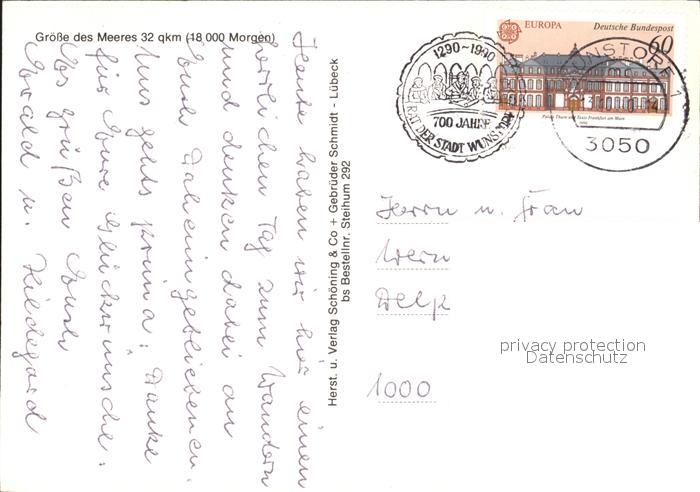 Größe des Meeres 32 qkm (18 000 Morgen)
Heute haben wir hier einen
herrlichen Tag zum Wandern
und denken dabei an
Euch Daheimgebliebenen.
Uns gehts prima. Danke
für Eure Glückwünsche.
Es grüßen Euch
Ewald u. Hildegard
Herst. u. Verlag Schöning & Co + Gebrüder Schmidt - Lübeck
bs Bestellnr. Steihum 292
1290-1990
700 JAHRE
RAT DER STADT WUNSTORF
EUROPA
Deutsche Bundespost
60
Palais Thurn und Taxis Frankfurt am Main
WUNSTORF 1
3050
Herrn u. Frau
Wern
Delp
privacy protection
Datenschutz
1000